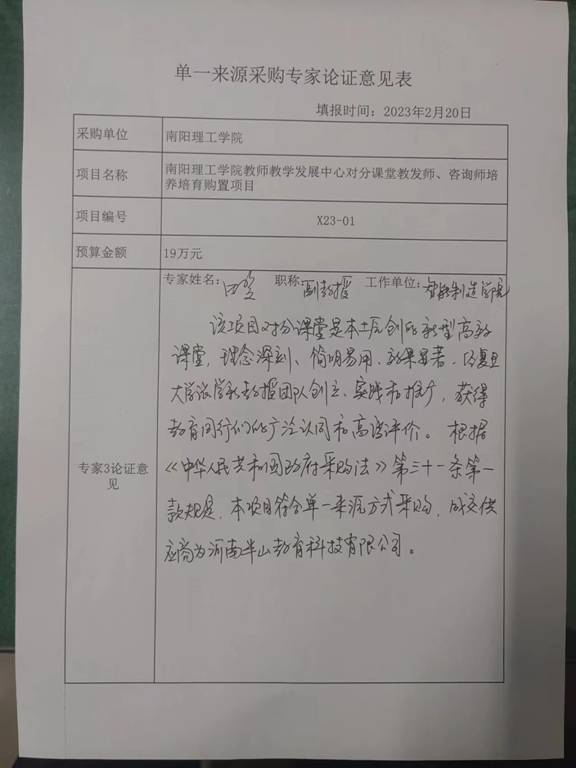 单一来源采购专家论证意见表
填报时间：2023年2月20日
采购单位
南阳理工学院
项目名称
南阳理工学院教师教学发展中心对分课堂教发师、咨询师培
养培育购置项目
项目编号
X23-01
预算金额
19万元
专家3论证意
见
专家姓名： 职称 副教授 工作单位：智能制造学院
该项目对分课堂是本土原创的新型高效
课堂，理念深刻、简明易用、效果显著，
大学张学新教授团队创立、实践和推广，获得
教育同行们的广泛认同和高度评价。根据
《中华人民共和国政府采购法》第三十一条第一
款规定，本项目符合单一来源方式采购，成交供
应商为河南半山教育科技有限公司。